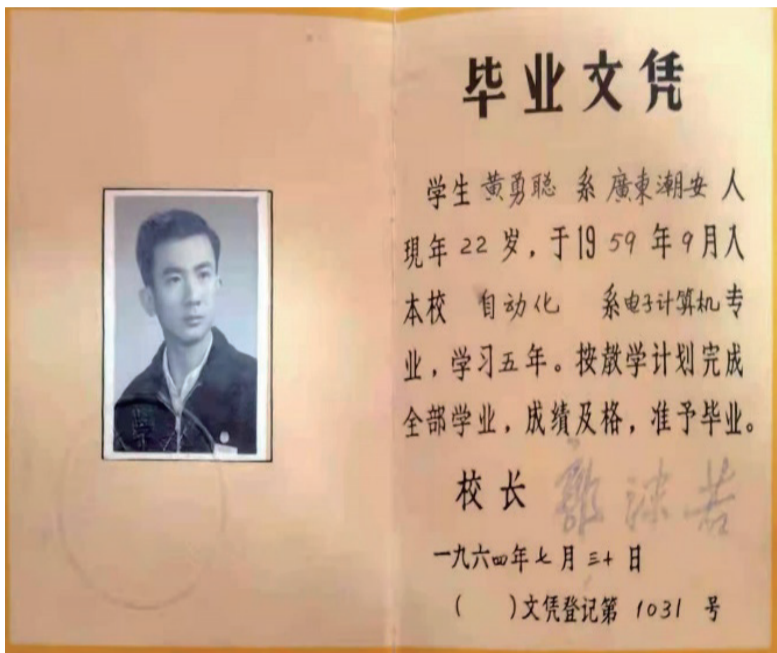 毕业文凭
学生 黄勇聪 系 廣東潮安 人
現年 22 岁，于19 59 年 9 月入
本校 自动化 系电子计算机专
业，学习五年。按教学计划完成
全部学业，成绩及格，准予毕业。
校长 郭沫若
一九六四年七月三十日
( )文凭登记第 1031 号